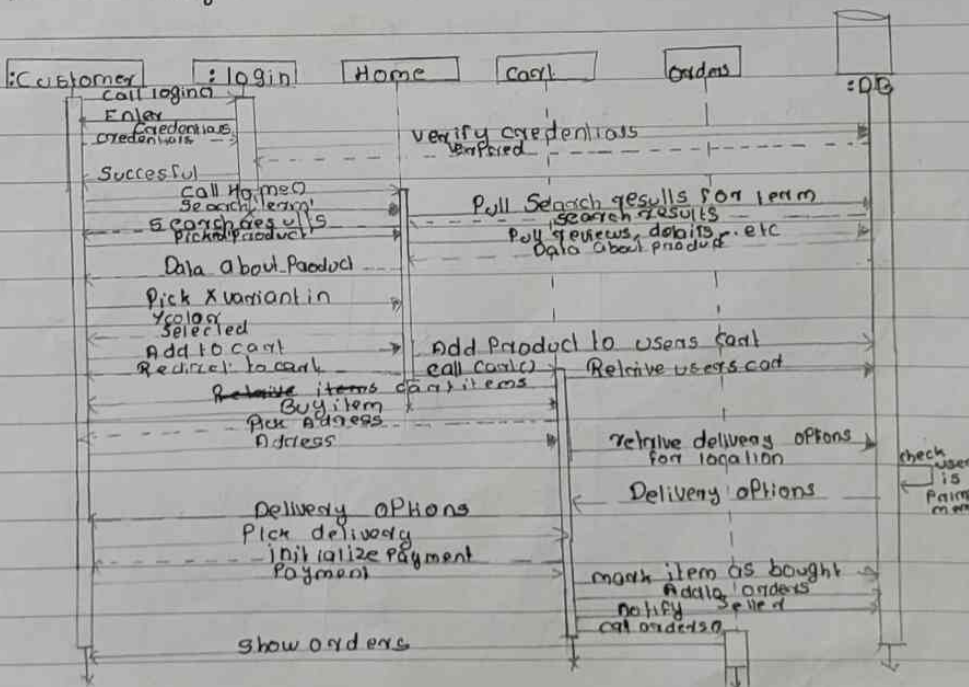 :Customer
: login
Home
Cart
Orders
:DB
call login()
Enter
Credentials
credentials
verify credentials
Verified
Succesful
call Home()
Search term'
Pull Search results for term
search results
Search results
Pickd Product
Pull reviews, details, etc
Data about product
Data about Product
Pick X variant in
Y color
Selected
Add to cart
Add Product to users cart
Redirect to cart
call cart()
Retrive users cart
items cart items
Buy item
Pick Adress
Address
retrive delivery options
for location
check
user
is
Delivery options
Delivery options
Pick delivery
initialize payment
Payment
mark item as bought
Add to orders
notify seller
call orders()
Show orders